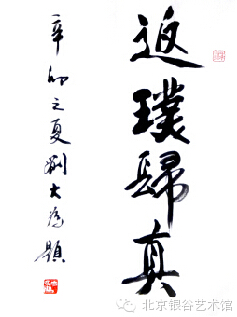 返璞归真
辛卯之夏刘大为题
北京银谷艺术馆